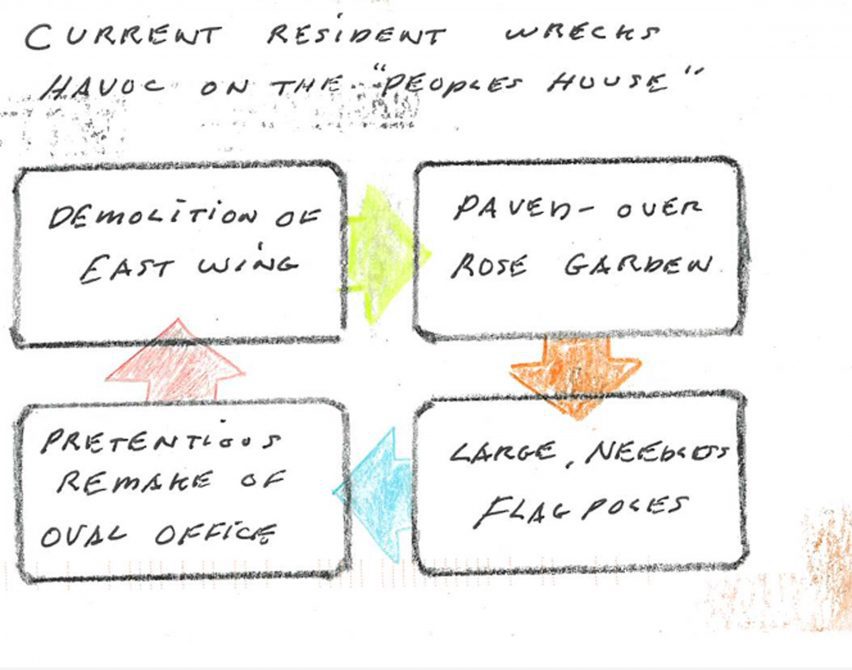 CURRENT RESIDENT WRECKS
HAVOC ON THE "PEOPLES HOUSE"
DEMOLITION OF
EAST WING
PAVED-OVER
ROSE GARDEN
LARGE, NEEDLESS
FLAG POLES
PRETENTIOUS
REMAKE OF
OVAL OFFICE